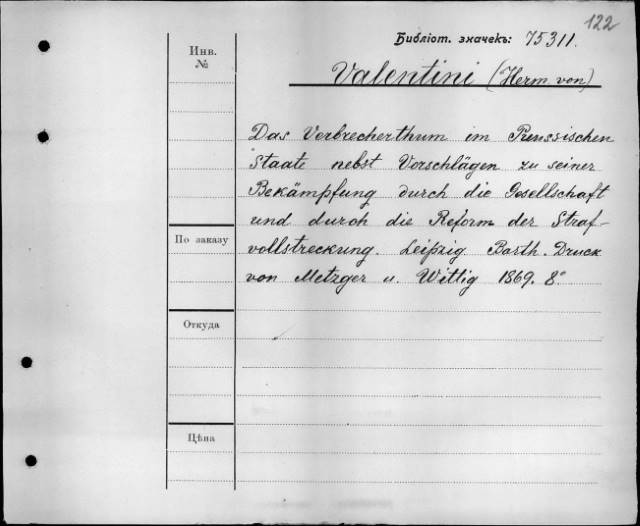 122
Библіот. значекъ: 75311.
Инв.
№
Valentini (Herm. von)
Das Verbrecherthum im Preussischen
Staate nebst Vorschlägen zu seiner
Bekämpfung durch die Gesellschaft
und durch die Reform der Straf-
vollstreckung. Leipzig. Barth. Druck
von Metzger u. Wittig 1869. 8°
По заказу
Откуда
Цѣна